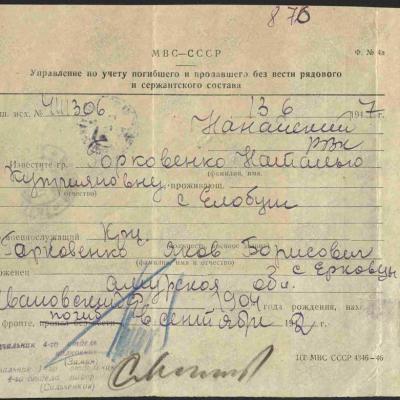 876
МВС—СССР
Ф. № 4а
Управление по учету погибшего и пропавшего без вести рядового
и сержантского состава
исх. № ЧШ306 13 6 1947 г.
Нанайский
РВК
Известите гр. Горковенко Наталью
(фамилия, имя,
проживающ.
отчество)
с Елобуш
военнослужащий Кр-ц
Горковенко Яков Борисович
(фамилия, имя и отчество)
с Ерковцы
Амурская обл.
Ивановский 1904 года рождения,
погиб
фронте, пропал без вести в сентябре 1942
начальник 4-го отдела
4-го отдела
МВС СССР 4346-46